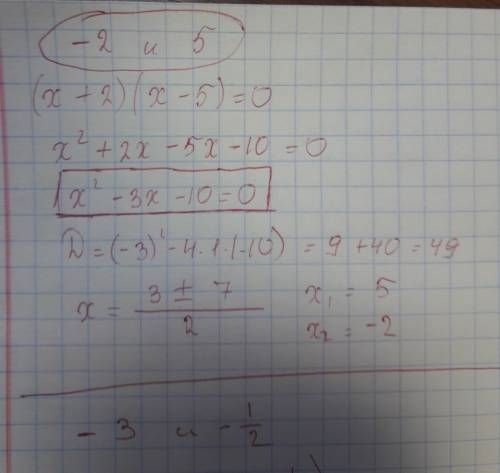 -2 и 5
(x + 2)(x - 5) = 0
x² + 2x - 5x - 10 = 0
x² - 3x - 10 = 0
D = (-3)² - 4·1·(-10) = 9 + 40 = 49
x = (3 ± 7)/2 x₁ = 5
x₂ = -2
- 3 и - 1/2